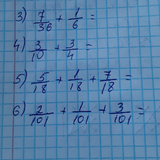 3) 7/36 + 1/6 =
4) 3/10 + 3/4 =
5) 5/18 + 1/18 + 7/18 =
6) 2/101 + 1/101 + 3/101 =